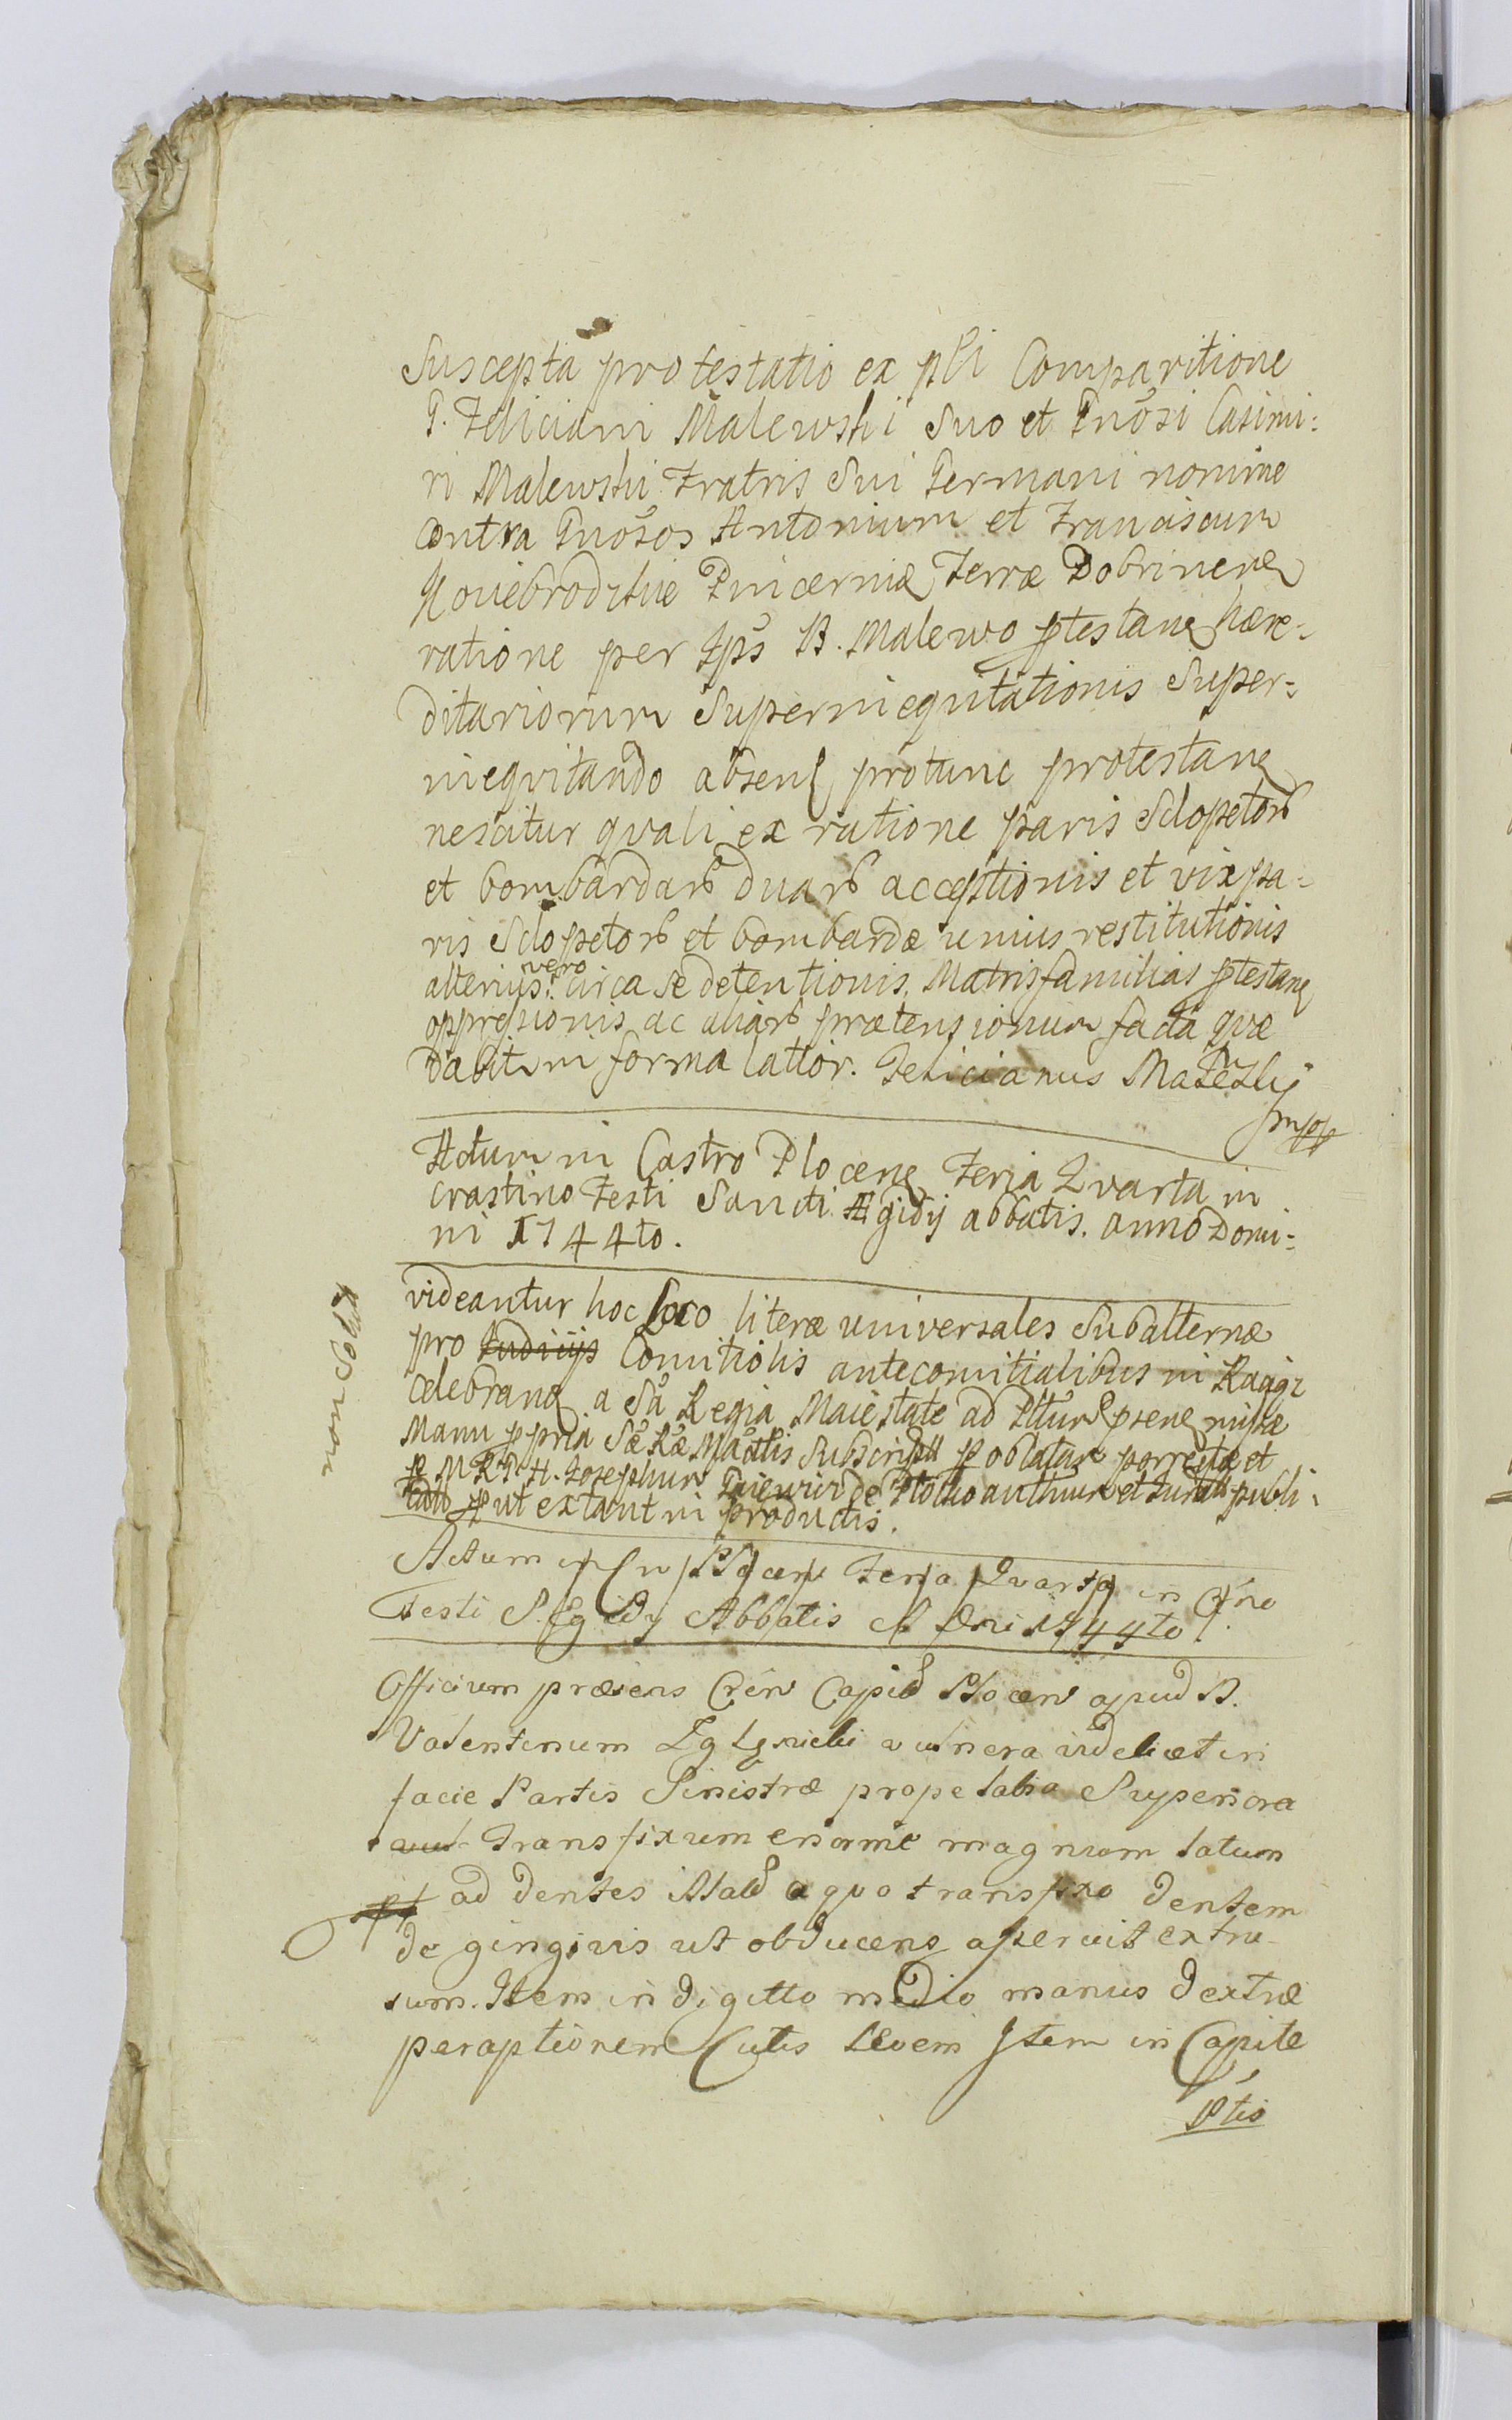 Suscepta protestatio ex pli Comparitione
G. Feliciani Malewski Suo et Gnosi Casimi:
ri Malewski Fratris Sui Germani nomine
contra Gnosos Antonium et Franciscum
Pincernæ Terræ Dobrinen
ratione per Ips B. Malewo ptestan hære:
ditariorum Superinequitationis Super:
inequitando absen protunc protestan
nescitur quali ex ratione paris Sclopetor
et bombardar duar acceptionis et vix pa:
ris Sclopetor et bombardæ unius restitutionis
alterius vero circa se detentionis, Matrisfamilias ptestan
oppresionis ac aliar prætensionum facta quæ
dabit in forma latior. Felicianus Maleski
mpp
Actum in Castro Plocen Feria Quarta in
crastino Festi Sancti Ægidij abbatis. anno Domi:
ni 1744to.
non solut
videantur hoc loco literæ universales Subalternæ
pro Judicijs Comitiolis antecomitialibus in Raciąz
celebran a Sa Regia Maiestate ad Pttum psens missæ
Manu ppria Sæ Ræ Mattis Subscript p oblatam porrectæ et
p M. R. P. H. Josephum de Plocko et publi:
put extant in productis.
Actum in Cro Plocen Feria Quarta in Cr̃no
Festi S. Egidy Abbatis A Dni 1744to.
Officium præsens Cren Capit Plocen apud B.
Valentinum vulnera videlicet in
facie Partis Sinistræ prope labia Superiora
Transfixum enorme magnum latum
ad dentes illat a quo transfixo dentem
de gingivis ut obducens aperuit extru-
sum. Item in digitto medio manus dextræ
peraptionem Cutis levem Item in Capite
Ptis